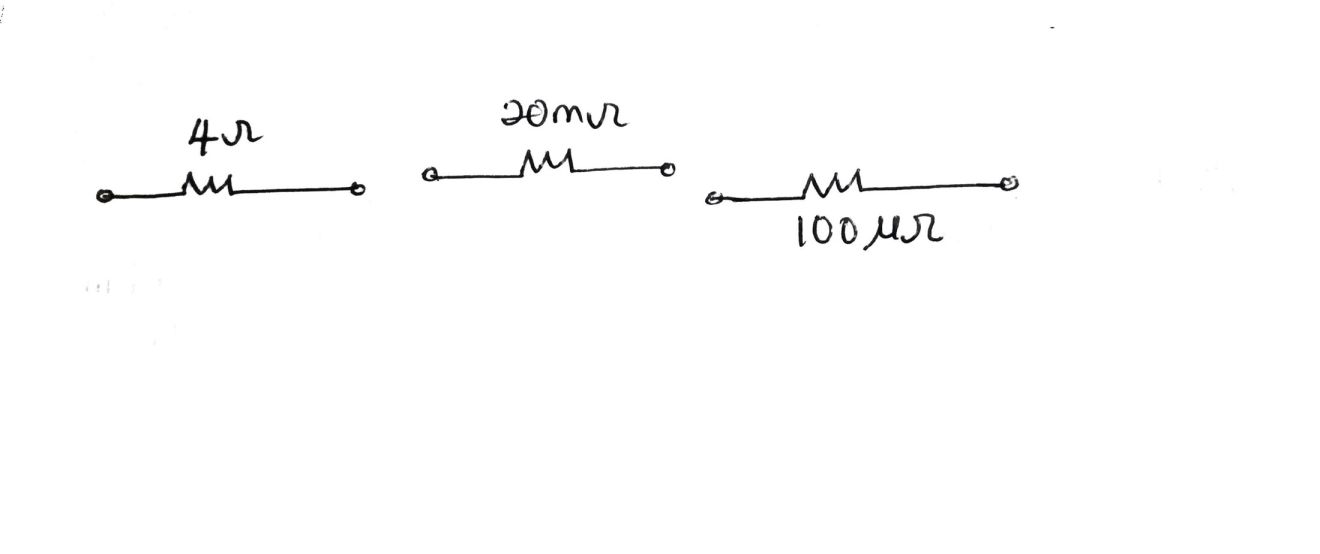 4Ω
20mΩ
100μΩ